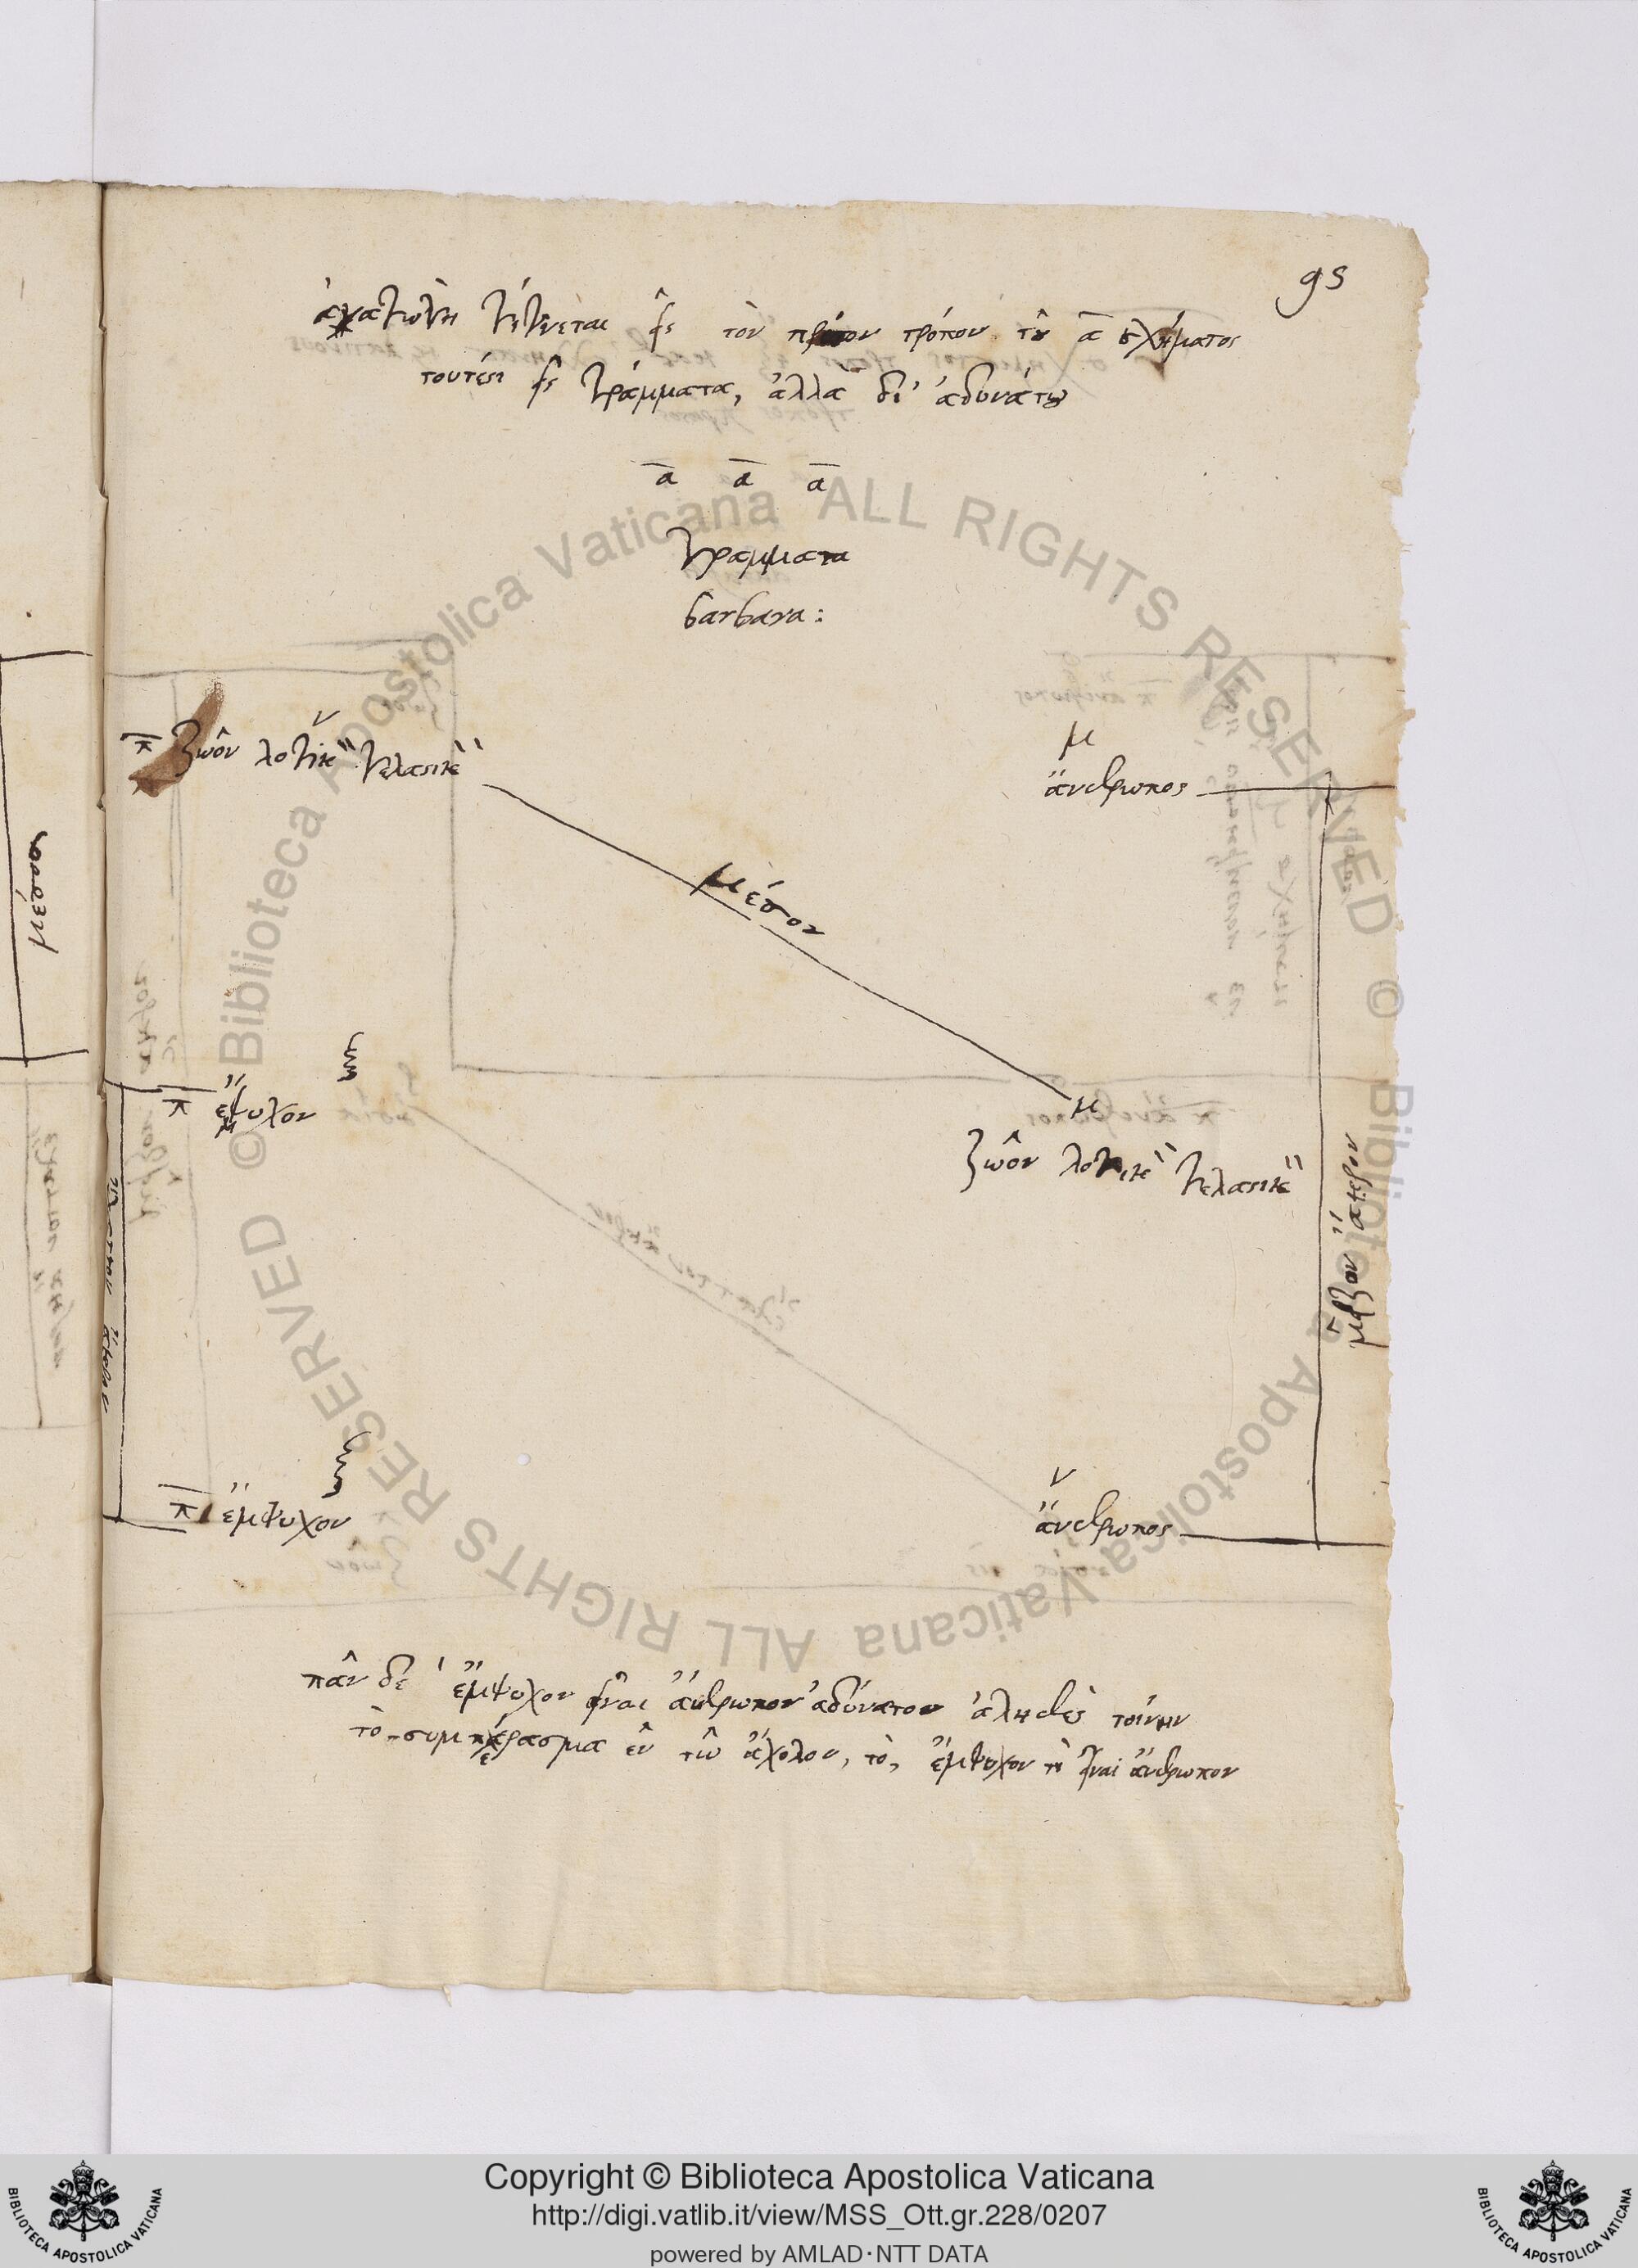 95
ἀναγωγὴ γίγνεται εἰς τὸν πρῶτον τρόπον τοῦ ᾱ σχήματος
τουτέστι εἰς γράμματα, ἀλλὰ δι' ἀδυνάτου
ᾱ ᾱ ᾱ
γραμματα
barbara:
π ζωὸν λογικ γελαστικ
μ
ἄνθρωπος
μέσον
μέσον
π ἔμψυχον
μ
ζωὸν λογικ γελαστικ
μεῖζον ἄκρον
ἔλαττον ἄκρον
π ἔμψυχον
ἄνθρωπος
πᾶν δὲ ἔμψυχον εἶναι ἄνθρωπον ἀδύνατον ἀληθὲς τοίνυν
τὸ συμπέρασμα ἐν τῶ ἄχολον, τὸ, ἔμψυχον τὶ εἶναι ἄνθρωπον
Copyright © Biblioteca Apostolica Vaticana
http://digi.vatlib.it/view/MSS_Ott.gr.228/0207
powered by AMLAD·NTT DATA
BIBLIOTECA APOSTOLICA VATICANA
BIBLIOTECA APOSTOLICA VATICANA
© Biblioteca Apostolica Vaticana ALL RIGHTS RESERVED
© Biblioteca Apostolica Vaticana ALL RIGHTS RESERVED